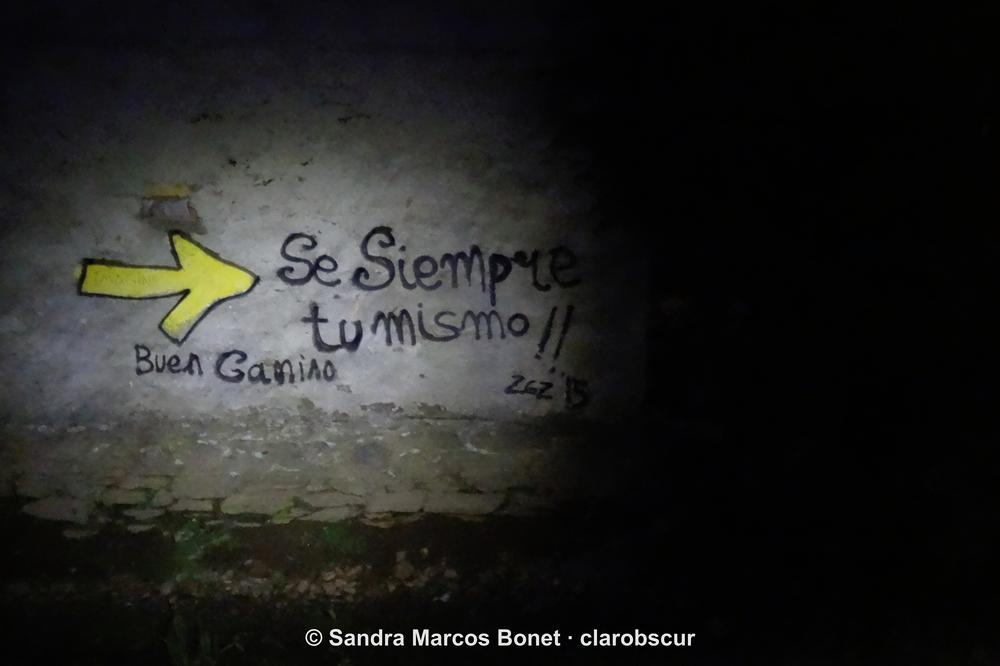 Se Siempre
tu mismo!!
Buen Camino
ZGZ '15
© Sandra Marcos Bonet · clarobscur